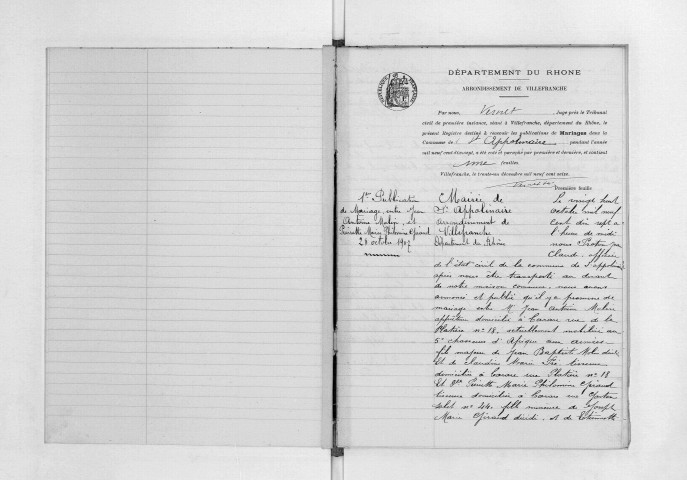 DÉPARTEMENT DU RHONE
ARRONDISSEMENT DE VILLEFRANCHE
Par nous, Verset, Juge près le Tribunal
civil de première instance, séant à Villefranche, département du Rhône, le
présent Registre destiné à recevoir les publications de Mariages dans la
Commune de St Appolinaire pendant l'année
mil neuf cent dix-sept, a été coté et paraphé par première et dernière, et contient
une feuilles.
Villefranche, le trente-un décembre mil neuf cent seize.
Première feuille
1re Publication
de Mariage entre Jean
Antoine Molin et
Pierrette Marie Philomène Giraud
28 octobre 1917
Mairie de
St Appolinaire
arrondissement de
Villefranche
Département du Rhône
Le vingt huit
octobre mil neuf
cent dix sept à
l'heure de midi
nous Jean
Claude, officier
de l'état civil de la commune de St Appolinaire
après nous être transporté au devant
de notre maison commune, nous avons
annoncé et publié qu'il y a promesse de
mariage entre Mr Jean Antoine Molin
apprêteur domicilié à Tarare rue de la
Platière no 18, actuellement mobilisé au
5e chasseurs d'Afrique aux armées
fils majeur de Jean Baptiste Molin décédé
et de Claudine Marie tisseuse
domiciliée à Tarare rue Platière no 18
Et Dlle Pierrette Marie Philomène Giraud
tisseuse domiciliée à Tarare rue
no 44, fille mineure de Joseph
Marie Giraud décédé et de